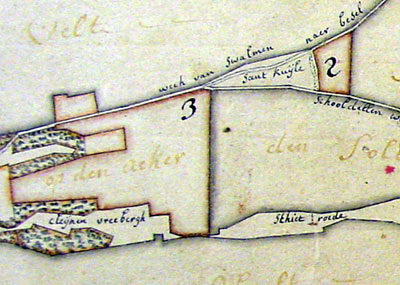 Velt
weeh van Swalmen naer besel
Sant kuijle
2
3
Schooldellen w
op den acker
den Sol
cleijnen vreebergh
Sthiet roede